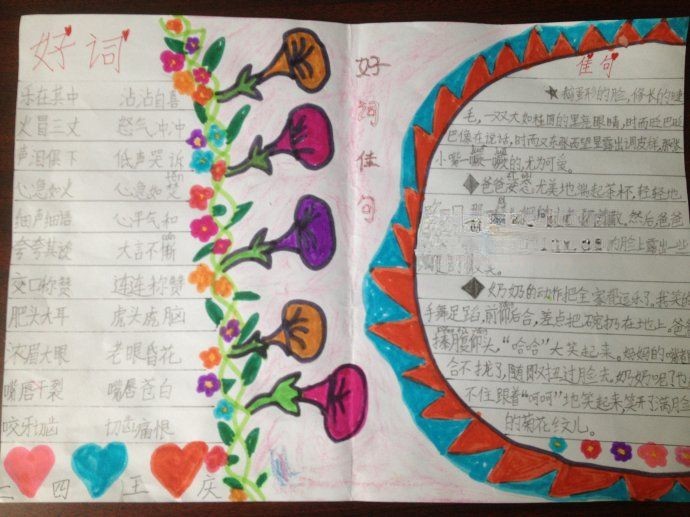 好词
乐在其中 沾沾自喜
火冒三丈 怒气冲冲
声泪俱下 低声哭诉
心急如火 心急如焚
细声细语 心平气和
夸夸其谈 大言不惭
交口称赞 连连称赞
肥头大耳 虎头虎脑
浓眉大眼 老眼昏花
嘴唇干裂 嘴唇苍白
咬牙切齿 切齿痛恨
二 四 王 庆
好词佳句
佳句
的脸,修长的睫
毛,一双大如桂圆的黑亮眼睛,时而眨巴眨
巴像在说话,时而又东张西望露出调皮样,那张
小嘴一噘一噘的,尤为可爱。
爸爸姿态优美地端起茶杯,轻轻地
然后爸爸
的脸上露出一些
奶奶的动作把全家都逗乐了。我笑的
手舞足蹈,前俯后合,差点把碗扔在地上。爸爸
揉腰仰头,“哈哈”大笑起来。妈妈的嘴都
合不拢了,随即又扭过脸去。奶奶呢?也
不住跟着“呵呵”地笑起来,笑开了满脸
的菊花纹儿。